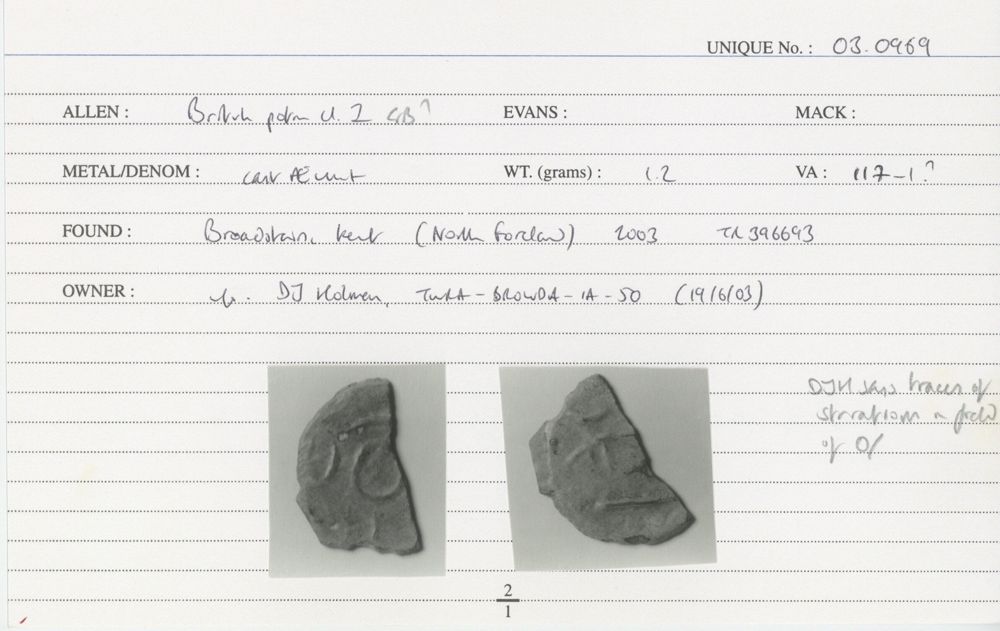 UNIQUE No. : 03.0969
ALLEN : British potin cl. I EVANS : MACK :
METAL/DENOM : cast Æ unit WT. (grams) : 1.2 VA : 117-1?
FOUND : Broadstairs, Kent (North Foreland) 2003 TR 396693
OWNER : DJ Holman, TWRA-BROWDA-IA-50 (19/6/03)
DJH says traces of
striations in field
of O/
2
1